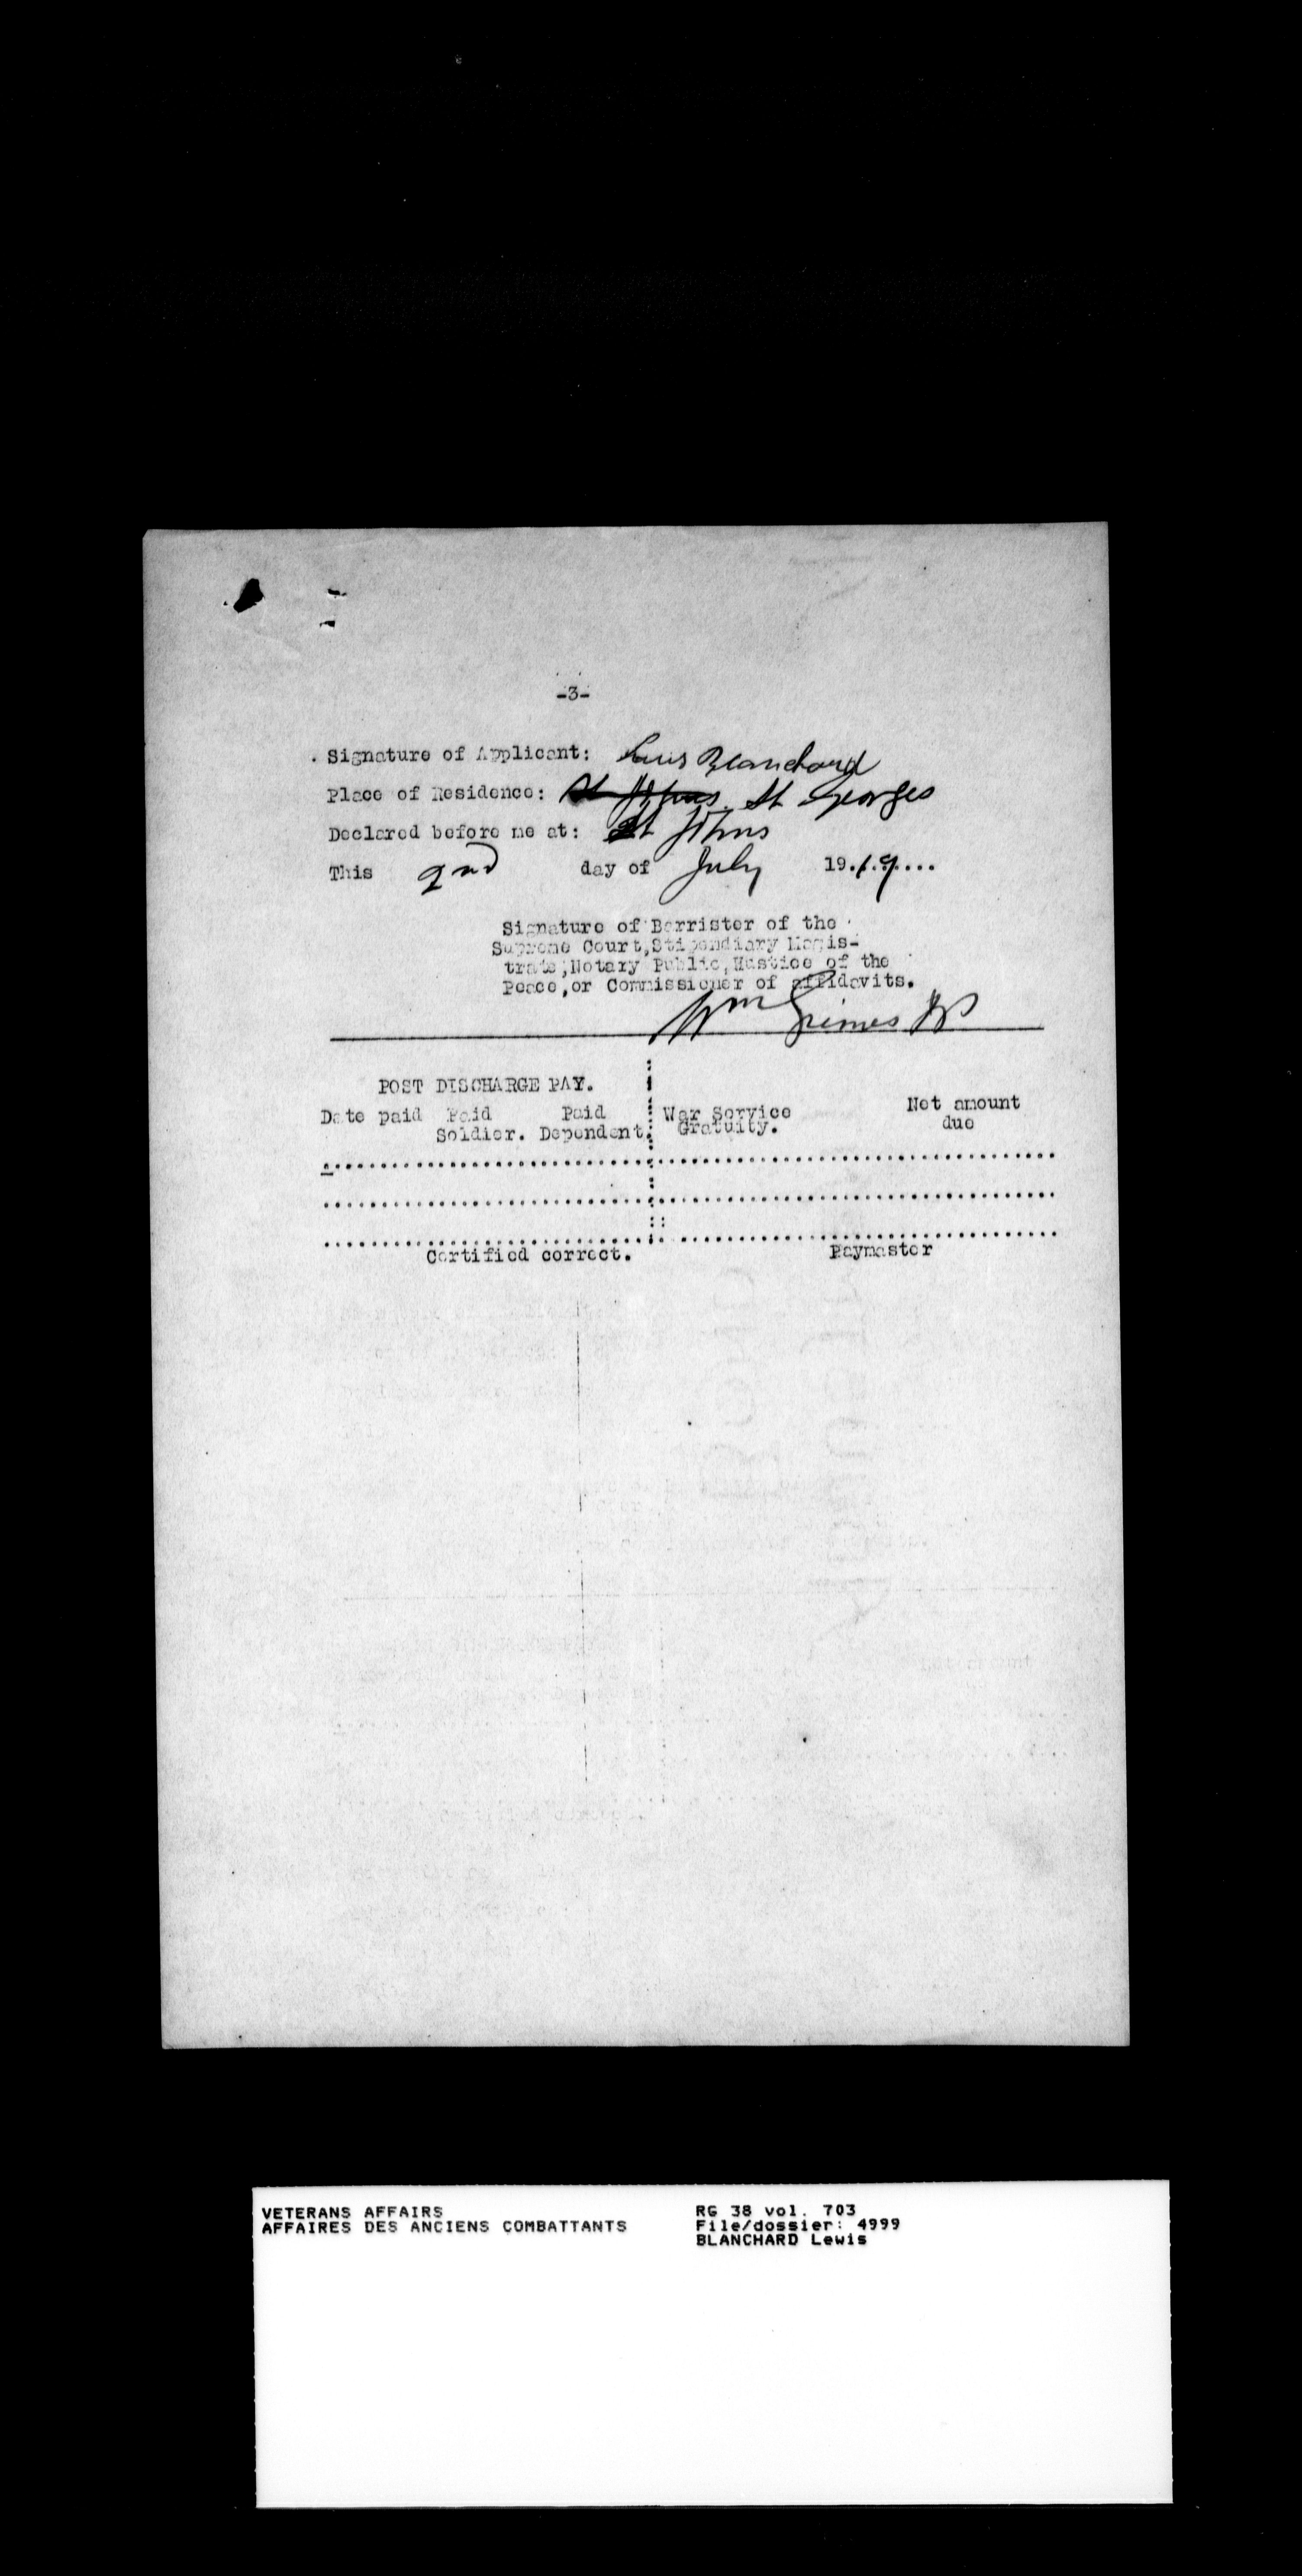 -3-
Signature of Applicant: Louis Blanchard
Place of Residence: St Johns. St Georges
Declared before me at: St Johns
This 2nd day of July 19.19....
Signature of Barrister of the
Supreme Court,Stipendiary Magis-
trate,Notary Public,Hustice of the
Peace,or Commissioner of affidavits.
Wm Grimes JP
POST DISCHARGE PAY.
Date paid Paid Paid War Service Net amount
Soldier. Dependent. Gratuity. due
Certified correct. Paymaster
VETERANS AFFAIRS RG 38 vol. 703
AFFAIRES DES ANCIENS COMBATTANTS File/dossier: 4999
BLANCHARD Lewis